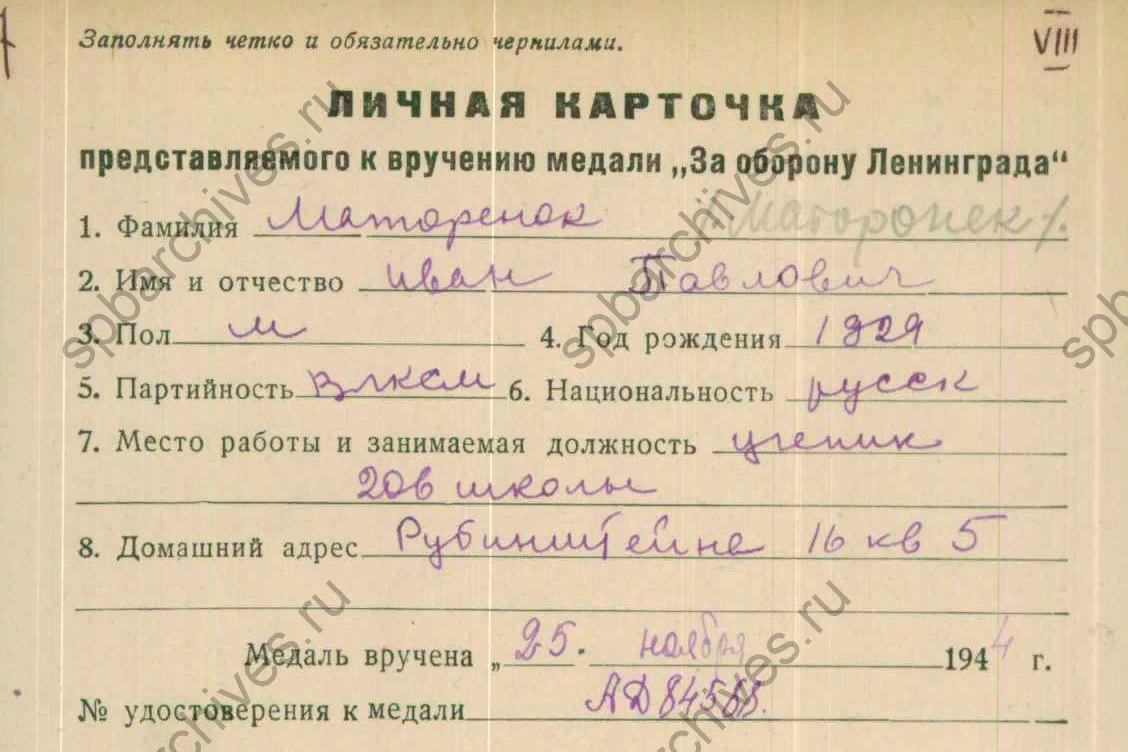 Заполнять четко и обязательно чернилами.
VIII
ЛИЧНАЯ КАРТОЧКА
представляемого к вручению медали „За оборону Ленинграда“
1. Фамилия Маторенок (Маторонек).
2. Имя и отчество Иван Павлович
3. Пол м 4. Год рождения 1929
5. Партийность влксм 6. Национальность русск
7. Место работы и занимаемая должность ученик
206 школы
8. Домашний адрес Рубинштейна 16 кв 5
Медаль вручена „25. ноября 1944 г.
№ удостоверения к медали АД 84568.
spbarchives.ru
spbarchives.ru
spbarchives.ru
spbarchives.ru